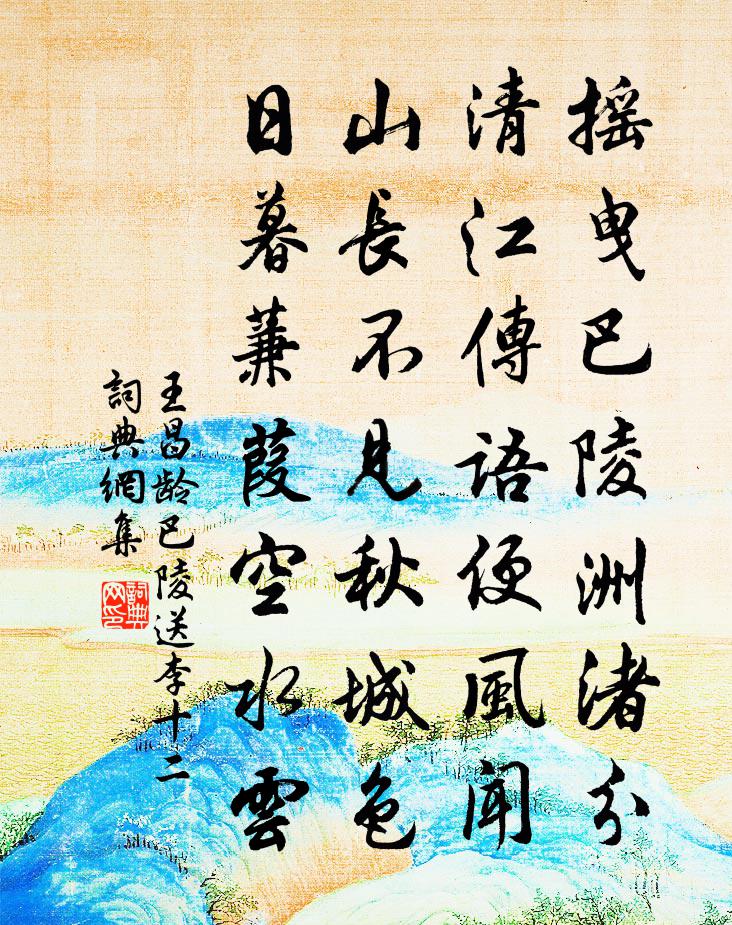 摇曳巴陵洲渚分
清江傳語便風聞
山長不見秋城色
日暮蒹葭空水雲
王昌龄巴陵送李十二
詞典網集
詞典网印